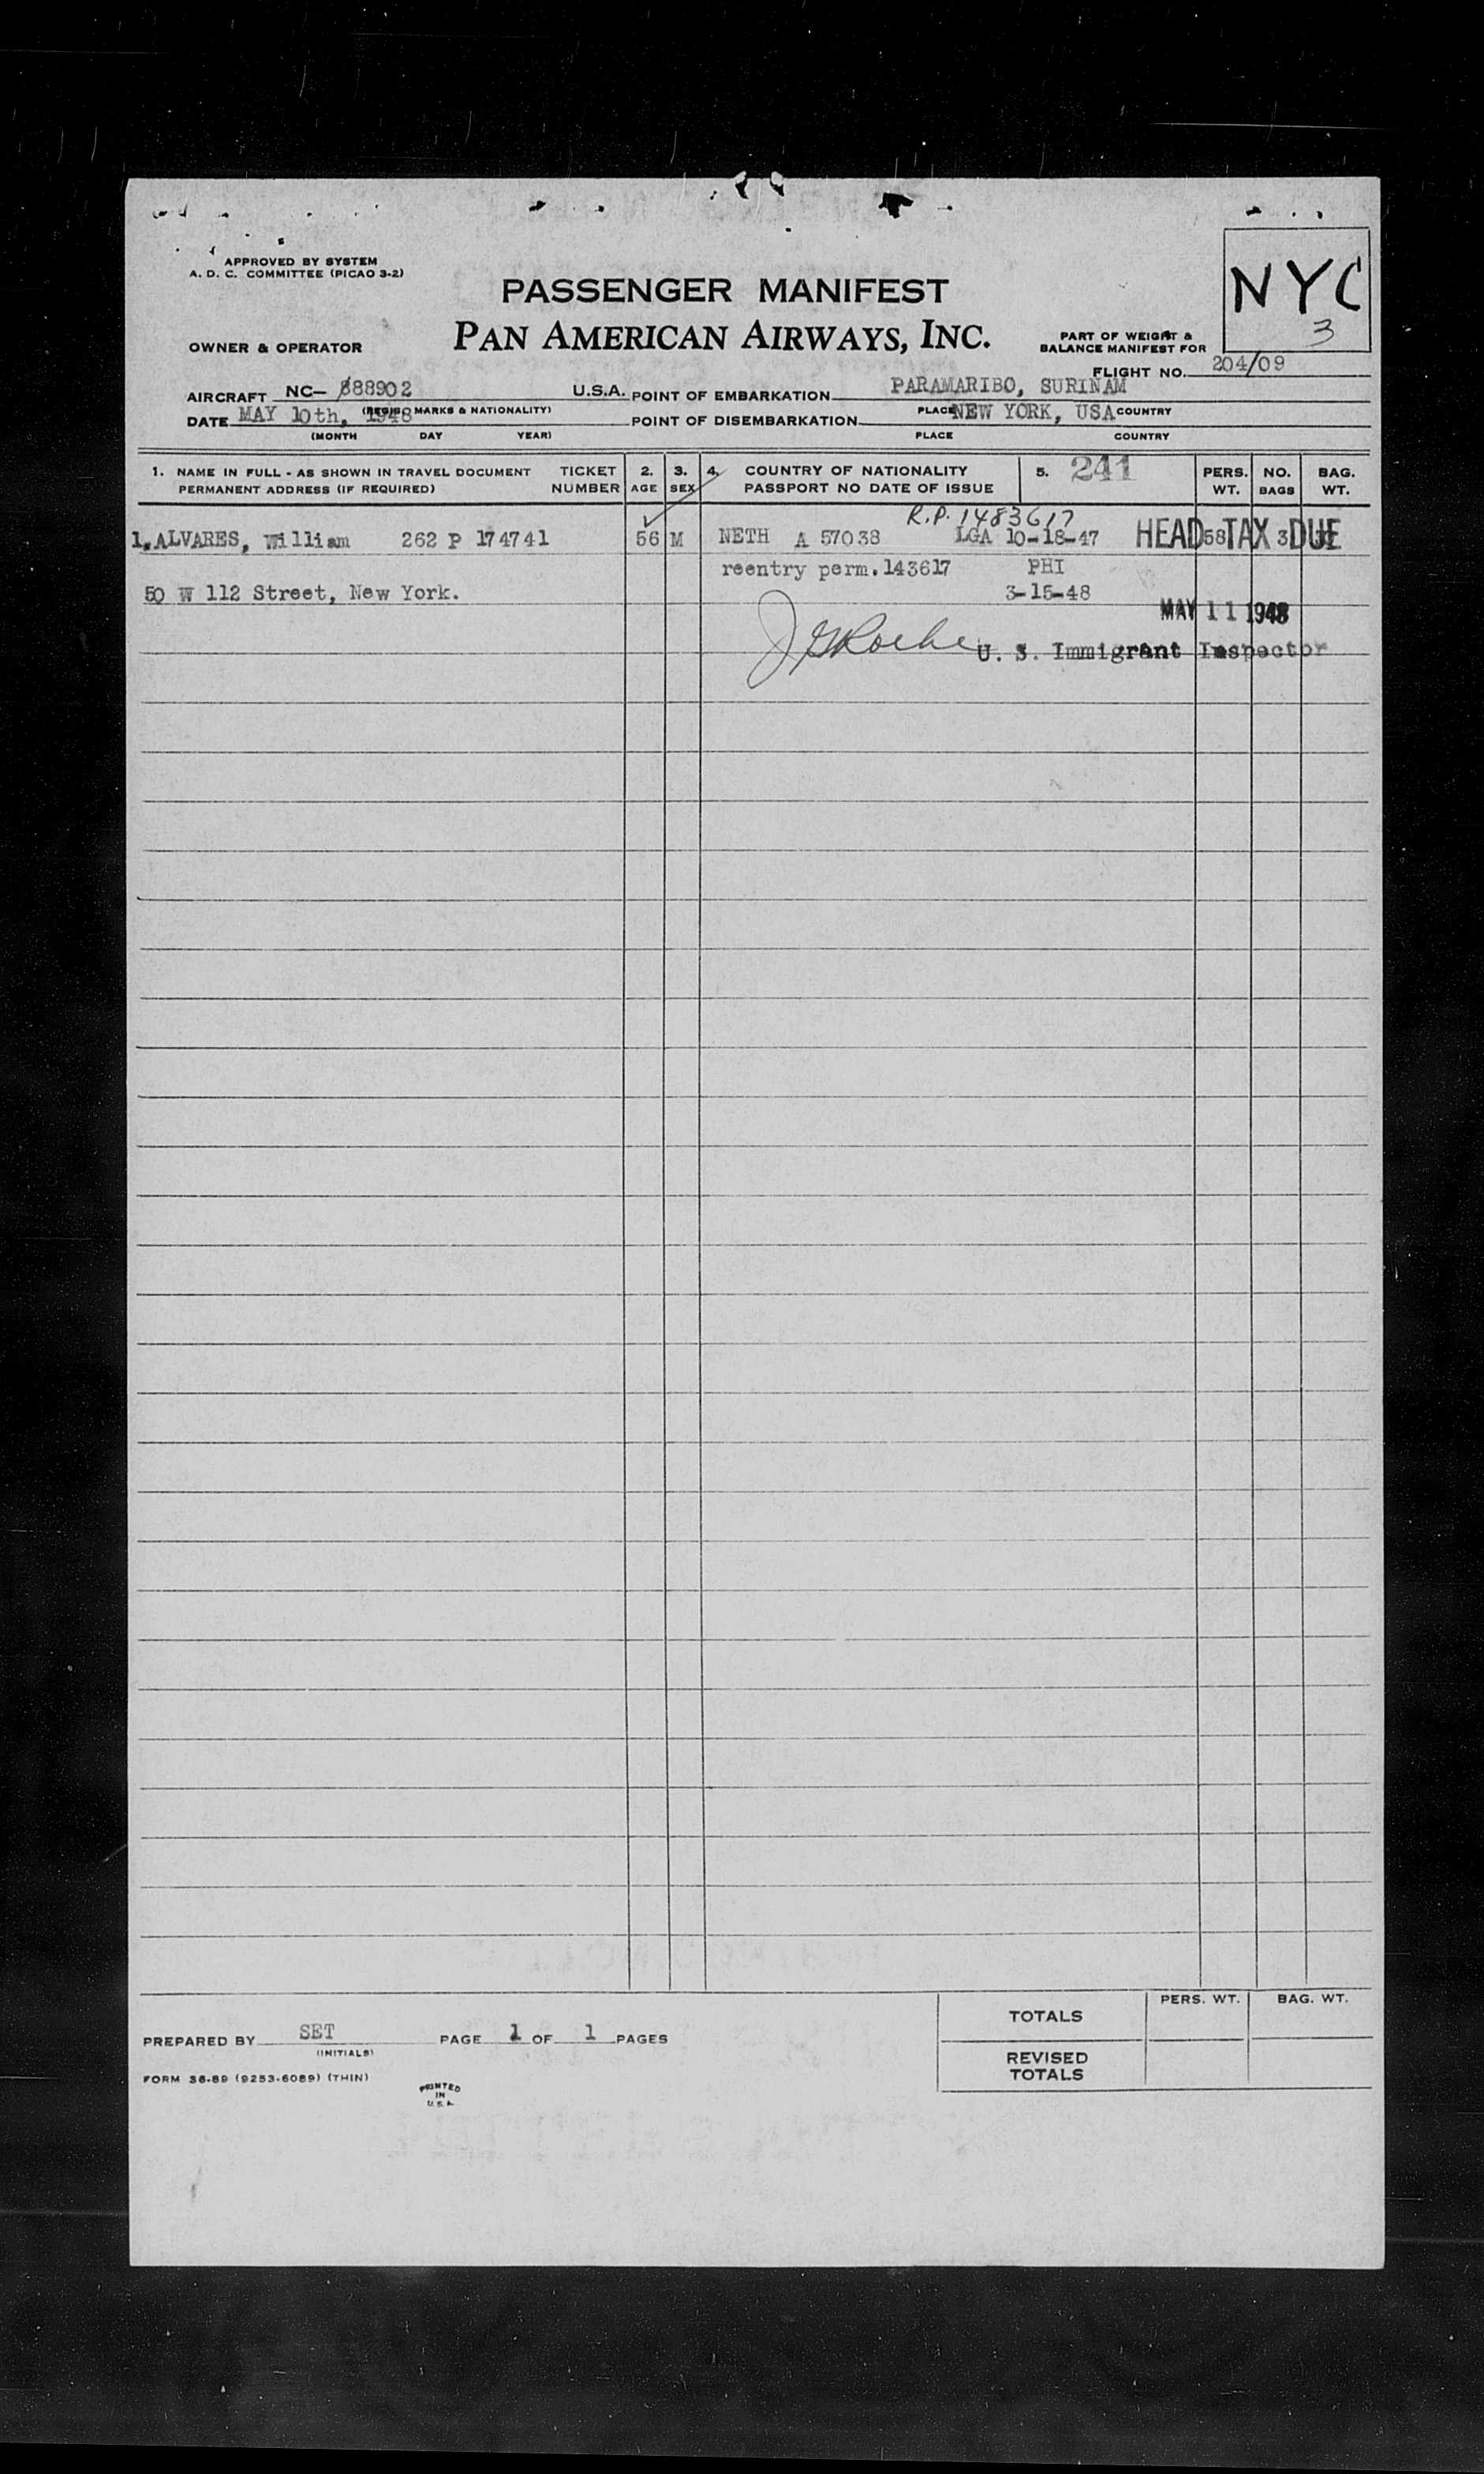 APPROVED BY SYSTEM
A. D. C. COMMITTEE (PICAO 3-2)
NYC
3
PASSENGER MANIFEST
PAN AMERICAN AIRWAYS, INC.
OWNER & OPERATOR
PART OF WEIGHT &
BALANCE MANIFEST FOR
FLIGHT NO. 204/09
AIRCRAFT NC- 888902 U.S.A. POINT OF EMBARKATION PARAMARIBO, SURINAM
(REGIS. MARKS & NATIONALITY) PLACE COUNTRY
DATE MAY 10th, 1948 POINT OF DISEMBARKATION NEW YORK, USA
(MONTH DAY YEAR) PLACE COUNTRY
1. NAME IN FULL - AS SHOWN IN TRAVEL DOCUMENT TICKET 2. 3. 4. COUNTRY OF NATIONALITY 5. 241 PERS. NO. BAG.
PERMANENT ADDRESS (IF REQUIRED) NUMBER AGE SEX PASSPORT NO DATE OF ISSUE WT. BAGS WT.
R.P. 1483617
1. ALVARES, William 262 P 174741 56 M NETH A 57038 LGA 10-18-47 HEAD TAX DUE 58 3
reentry perm. 143617 PHI
50 W 112 Street, New York. 3-15-48
MAY 11 1948
U. S. Immigrant Inspector
TOTALS PERS. WT. BAG. WT.
REVISED TOTALS
PREPARED BY SET PAGE 1 OF 1 PAGES
(INITIALS)
FORM 36-89 (9253-6089) (THIN)
PRINTED
IN
U.S.A.